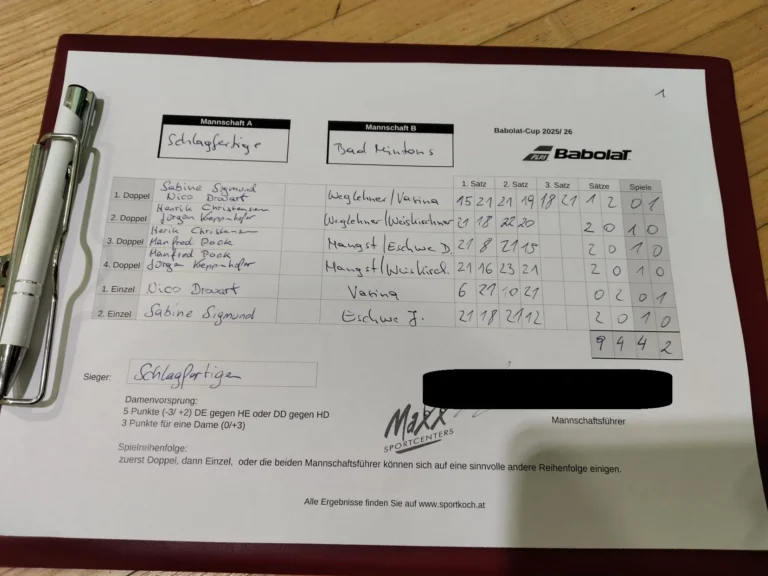 1
Mannschaft A
Schlagfertige
Mannschaft B
Bad Mintons
Babolat-Cup 2025/ 26
PLAY BABOLAT
1. Satz 2. Satz 3. Satz Sätze Spiele
Sabine Sigmund
1. Doppel Nico Drovart Weglehner/Varina 15 21 21 19 18 21 1 2 0 1
Henrik Christensen
2. Doppel Jürgen Kieppenhofer Weglehner/Weiskirchner 21 18 22 20 2 0 1 0
Henrik Christensen
3. Doppel Manfred Pock Mangst/Eschwe D. 21 8 21 15 2 0 1 0
Manfred Pock
4. Doppel Jürgen Kieppenhofer Mangst/Weiskirch. 21 16 23 21 2 0 1 0
1. Einzel Nico Drovart Varina 6 21 10 21 0 2 0 1
2. Einzel Sabine Sigmund Eschwe J. 21 18 21 12 2 0 1 0
9 4 4 2
Sieger: Schlagfertigen
Damenvorsprung:
5 Punkte (-3/ +2) DE gegen HE oder DD gegen HD
3 Punkte für eine Dame (0/+3)
MaXX
SPORTCENTERS
Mannschaftsführer
Spielreihenfolge:
zuerst Doppel, dann Einzel, oder die beiden Mannschaftsführer können sich auf eine sinnvolle andere Reihenfolge einigen.
Alle Ergebnisse finden Sie auf www.sportkoch.at